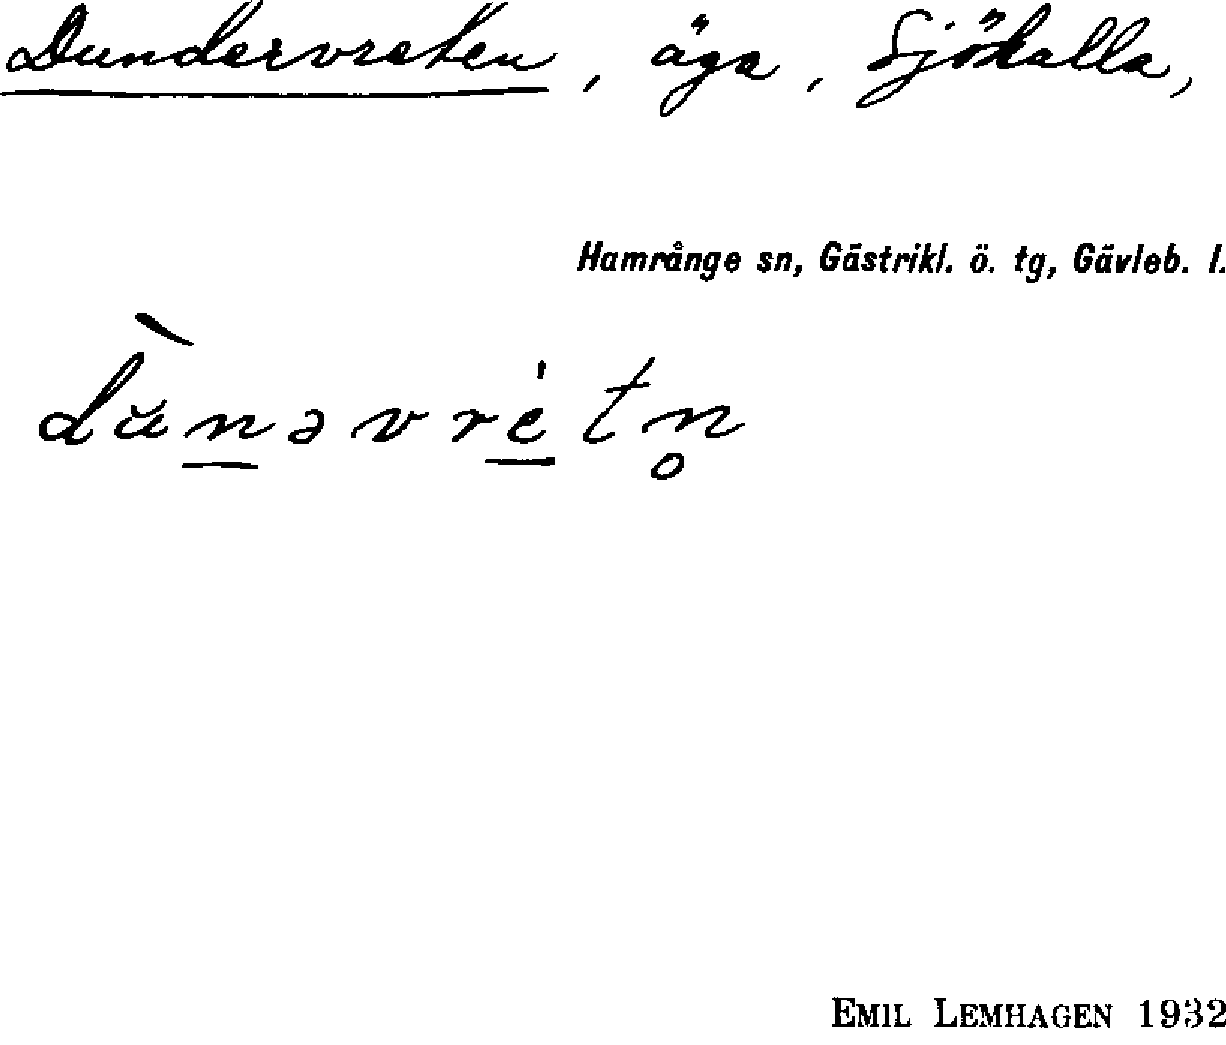 Dundervreten, äga, Sjökalla,
Hamrånge sn, Gästrikl. ö. tg, Gävleb. l.
dŭ̀n̲əvrė̲tn̥
EMIL LEMHAGEN 1932